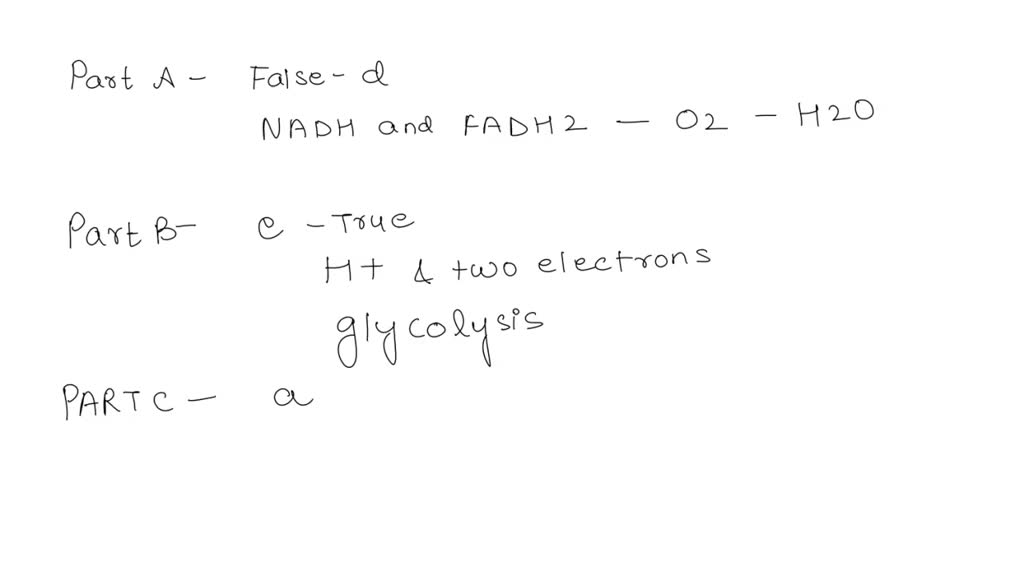 Part A - False - d
NADH and FADH2 - O2 - H2O
Part B - c - True
H+ & two electrons
glycolysis
PART C - a